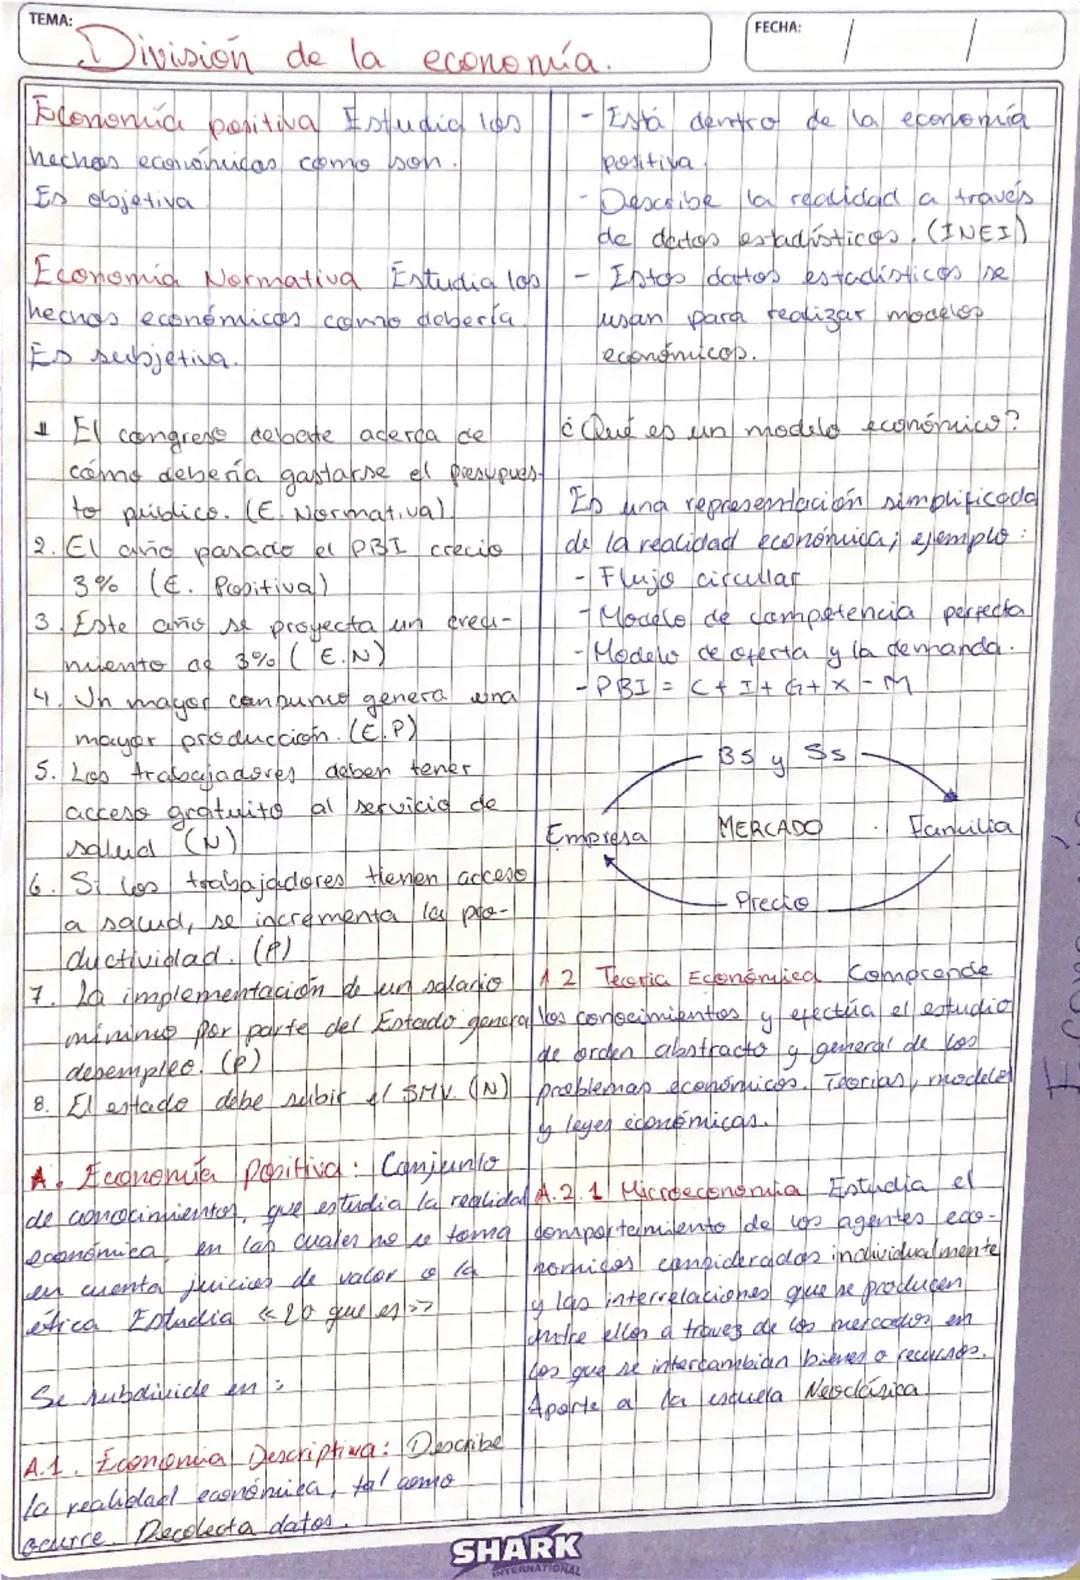 TEMA:
División de la economía.
FECHA: / /
Economía positiva Estudia los
hechos económicos como son.
Es objetiva
Economía Normativa Estudia los
hechos económicos como debería.
Es subjetiva.
1 El congreso debate acerca de
cómo debería gastarse el presupues-
to público. (E. Normativa).
2. El año pasado el PBI crecio
3% (E. Positiva)
3. Este año se proyecta un creci-
miento de 3% (E.N)
4. Un mayor consumo genera una
mayor producción. (E.P)
5. Los trabajadores deben tener
acceso gratuito al servicio de
salud (N)
6. Si los trabajadores tienen acceso
a salud, se incrementa la pro-
ductividad. (P)
7. La implementación de un salario
mínimo por parte del Estado genera
desempleo. (P)
8. El estado debe subir el SMV. (N)
A. Economía positiva: Conjunto
de conocimientos, que estudia la realidad
económica, en las cuales no se toma
en cuenta juicios de valor o la
ética Estudia «Lo que es»
Se subdivide en:
A.1. Economia Descriptiva: Describe
la realidad económica, tal como
ocurre. Decolecta datos.
- Está dentro de la economía
positiva.
- Describe la realidad a través
de datos estadísticos. (INEI)
- Estos datos estadísticos se
usan para realizar modelos
económicos.
¿Qué es un modelo económico?
Es una representación simplificada
de la realidad económica; ejemplo:
- Flujo circular
- Modelo de competencia perfecta
- Modelo de oferta y la demanda.
- PBI = C + I + G + X - M
Bs y Ss
Empresa MERCADO Familia
Precio
A.2 Teoria Económica Comprende
los conocimientos y efectúa el estudio
de orden abstracto y general de los
problemas económicos. Teorias, modelos
y leyes económicas.
A.2.1 Microeconomia Estudia el
comportamiento de los agentes eco-
nomicos considerados individualmente
y las interrelaciones que se producen
entre ellos a travez de los mercados en
los que se intercambian bienes o recursos.
Aporte a la escuela Neoclásica
SHARK
INTERNATIONAL